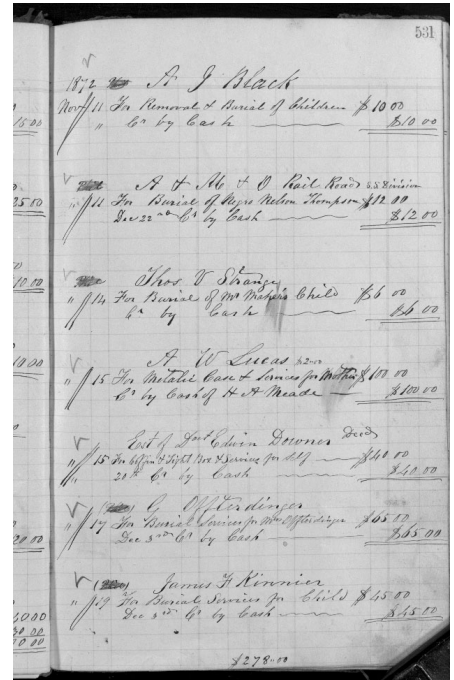 531
1872 A J Black
Nov 11 For Removal & Burial of Children $10 00
" Cr by Cash $10 00
A & M & O Rail Road S.S Division
" 11 For Burial of Negro Nelson Thompson $12 00
Dec 22nd Cr by Cash $12 00
Thos. V Strange
" 14 For Burial of Mr Maher's Child $6 00
Cr by Cash $6 00
A W Lucas
" 15 For Metalic Case & Services for Mother $100 00
Cr by Cash of H A Meade $100 00
Est of Edwin Downer Decd
" 15 For Coffin & Tight Box & Services for Self $40 00
" 20th Cr by Cash $40 00
G Offterdinger
" 17 For Burial Services for Mrs Offterdinger $65 00
Dec 3rd Cr by Cash $65 00
James F Kinnier
" 19 For Burial Services for Child $45 00
Dec 3rd Cr by Cash $45 00
$278.00
15 00
25 00
10 00
10 00
20 00